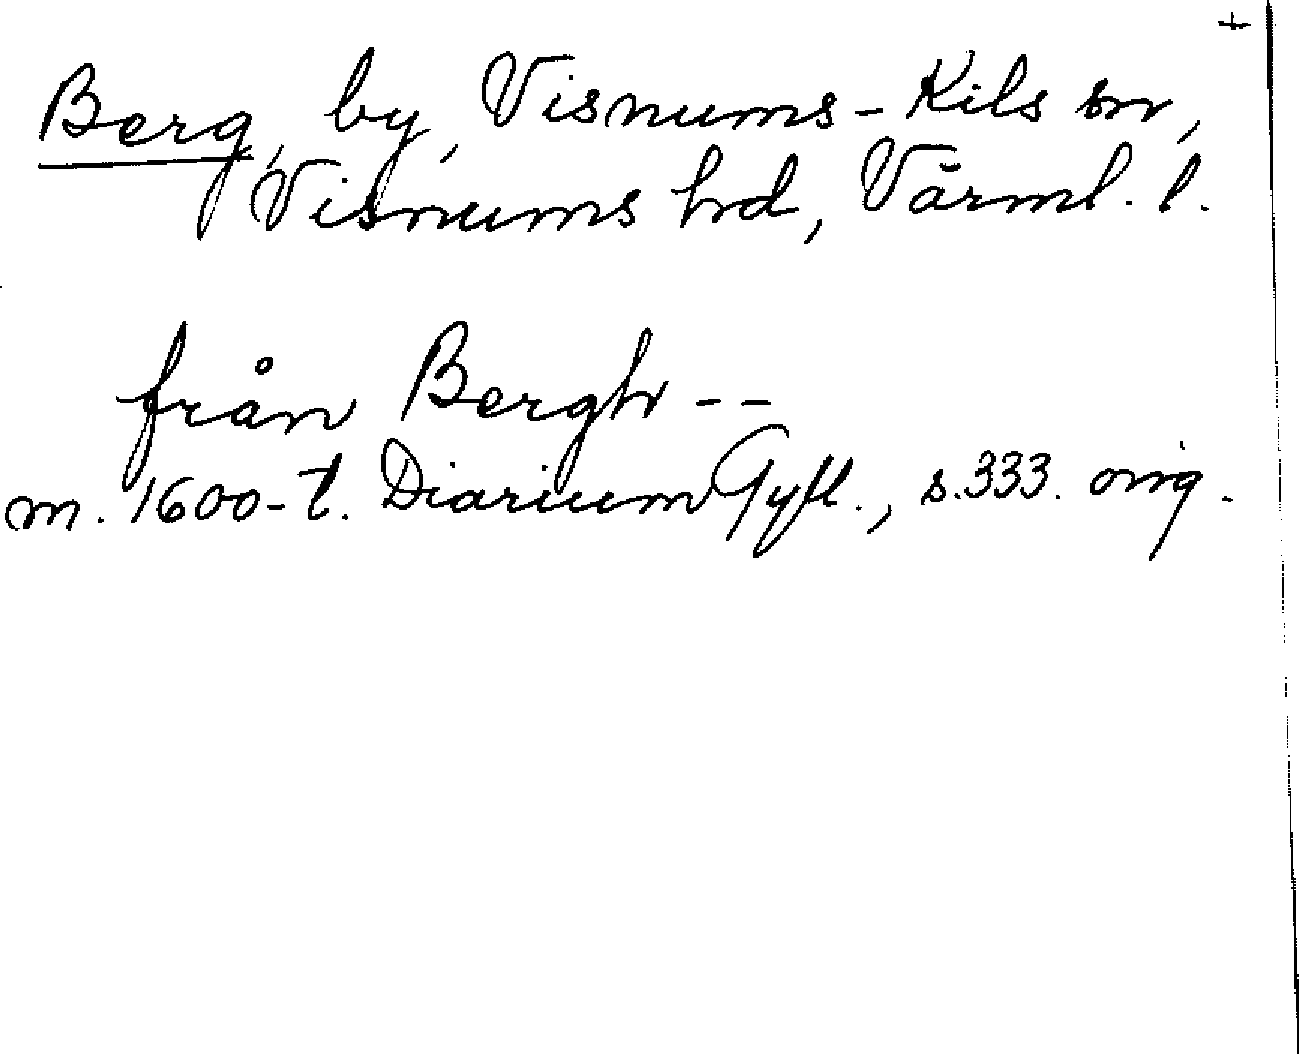 +
Berg, by, Visnums-Kils sn,
Visnums hd, Värml. l.
från Bergh --
m. 1600-t. Diarium Gyll., s. 333. orig.